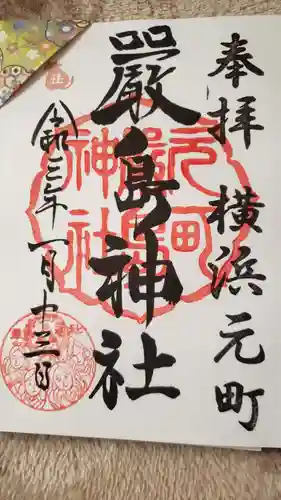 奉拝 横浜元町
嚴島神社
令和三年一月十三日
元町
嚴島
神社